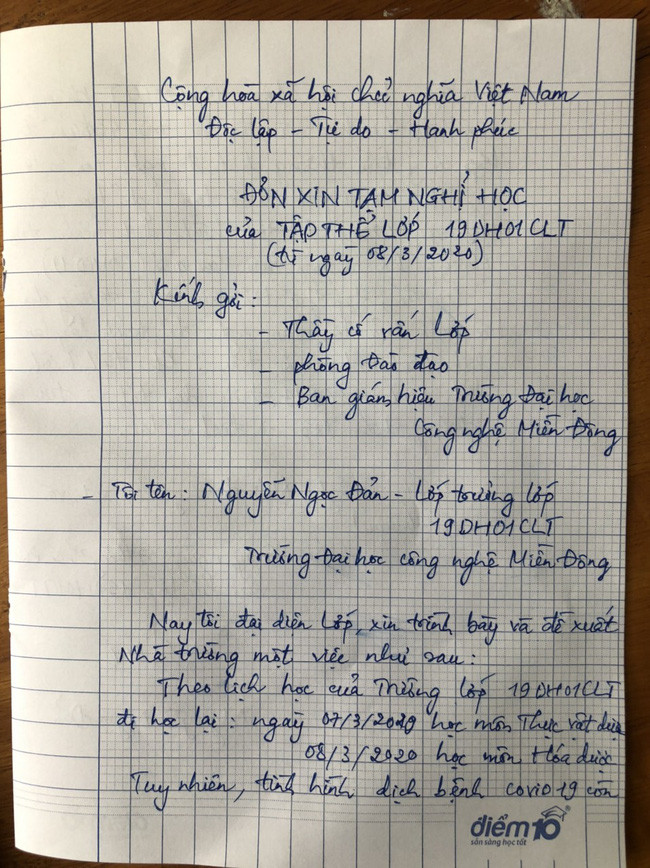 Cộng hòa xã hội chủ nghĩa Việt Nam
Độc lập - Tự do - Hanh phúc
ĐƠN XIN TẠM NGHỈ HỌC
của TẬP THỂ LỚP 19DH01CLT
(từ ngày 08/3/2020)
Kính gửi:
- Thầy cố vấn Lớp
- phòng Đào đạo
- Ban giám hiệu Trường Đại học
Công nghệ Miền Đông
- Tôi tên: Nguyễn Ngọc Đản - Lớp trưởng lớp
19DH01CLT
Trường Đại học công nghệ Miền Đông
Nay tôi đại diện Lớp, xin trình bày và đề xuất
Nhà trường một việc như sau:
Theo lịch học của Trường lớp 19DH01CLT
đi học lại: ngày 07/3/2020 học môn Thực vật dược
08/3/2020 học môn Hóa dược
Tuy nhiên, tình hình dịch bệnh covid19 còn
điểm10
sẵn sàng học tốt